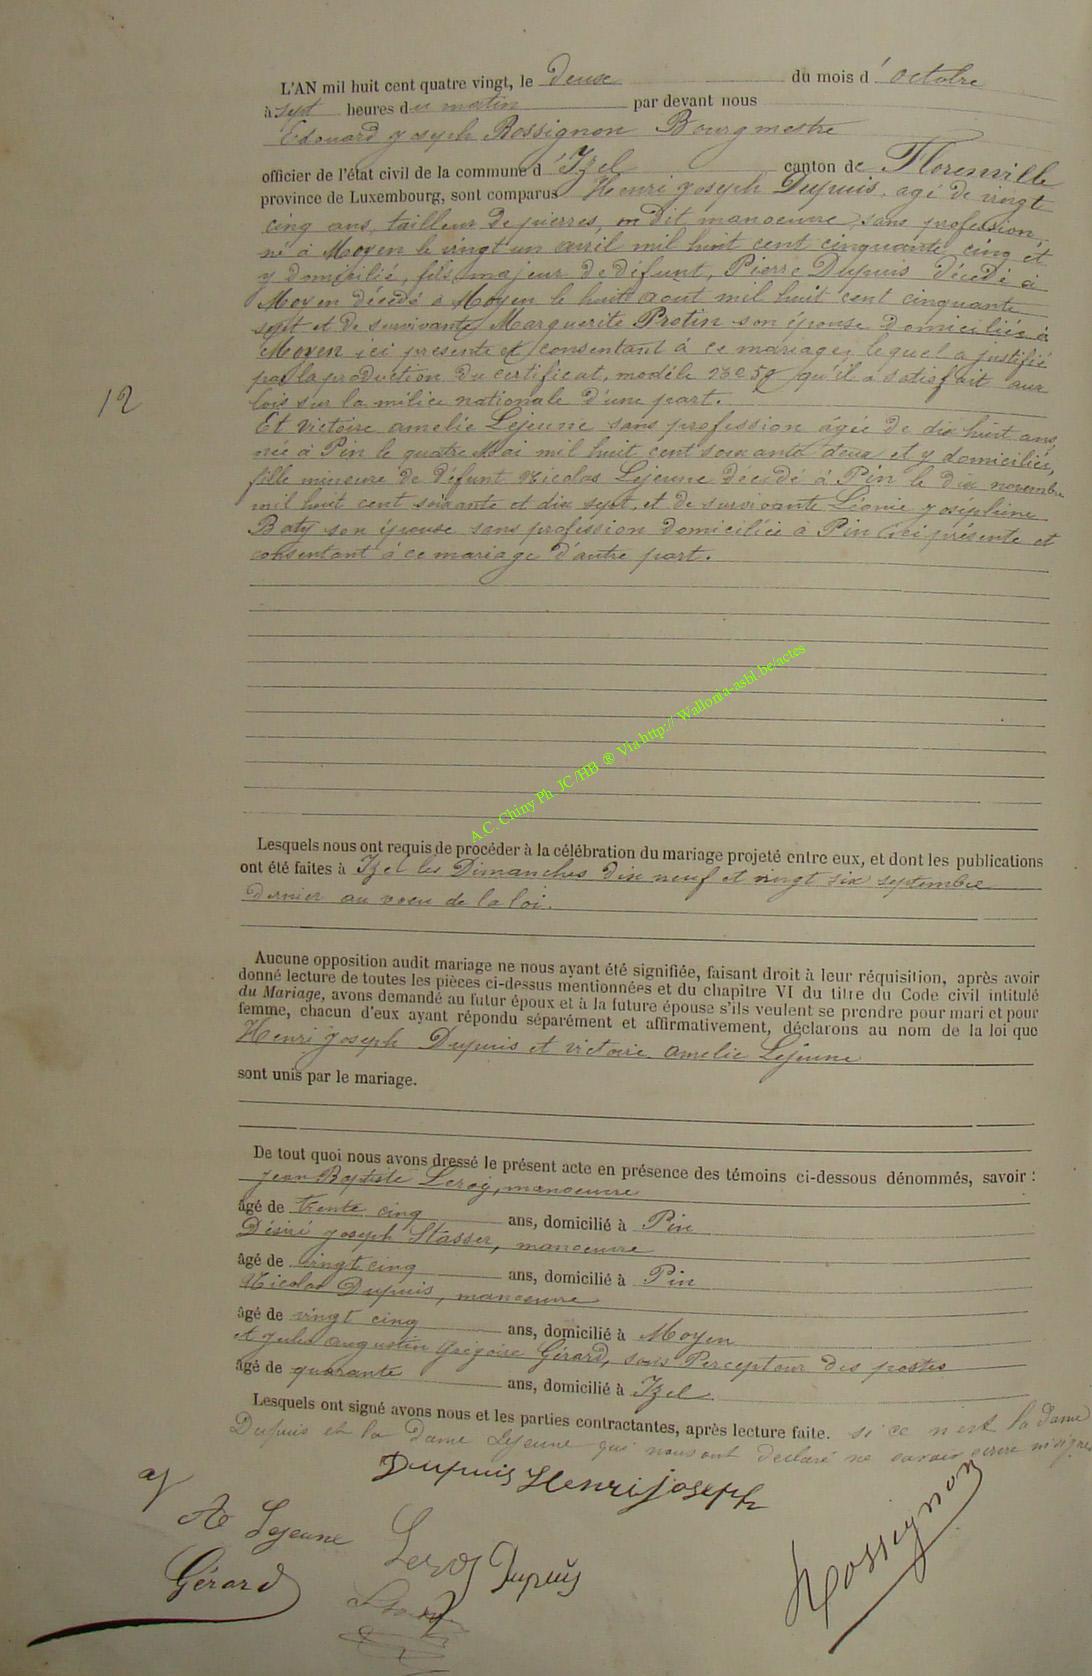 L'AN mil huit cent quatre vingt, le deux du mois d'octobre
à sept heures du matin par devant nous
Edouard Joseph Rossignon Bourgmestre
officier de l'état civil de la commune d'Izel canton de Florenville
province de Luxembourg, sont comparus Henri Joseph Dupuis, agé de vingt
cinq ans, tailleur de pierres, on dit manoeuvre, sans profession,
né à Moyen le vingt un avril mil huit cent cinquante cinq et
y domicilié, fils majeur de défunt, Pierre Dupuis décédé à
Moyen décédé à Moyen le huit aout mil huit cent cinquante
sept et de survivante Marguerite Protin son épouse domiciliée à
Moyen ici présente et consentant à ce mariage, lequel a justifié
par la production du certificat, modèle qu'il a satisfait aux
lois sur la milice nationale d'une part.
12
Et Victoire amelie Lejeune sans profession âgée de dix huit ans,
née à Pin le quatre Mai mil huit cent soixante deux et y domiciliée,
fille mineure de défunt Nicolas Lejeune décédé à Pin le dix novembre
mil huit cent soixante et dix sept, et de survivante Léonie Joséphine
Baty son épouse sans profession domiciliée à Pin ici présente et
consentant à ce mariage d'autre part.
A.C. Chiny Ph JC/HB ® Via:http:// Wallonia-asbl.be/actes
Lesquels nous ont requis de procéder à la célébration du mariage projeté entre eux, et dont les publications
ont été faites à Izel les Dimanches dix neuf et vingt six septembre
dernier au voeu de la loi.
Aucune opposition audit mariage ne nous ayant été signifiée, faisant droit à leur réquisition, après avoir
donné lecture de toutes les pièces ci-dessus mentionnées et du chapitre VI du titre du Code civil intitulé
du Mariage, avons demandé au futur époux et à la future épouse s'ils veulent se prendre pour mari et pour
femme, chacun d'eux ayant répondu séparément et affirmativement, déclarons au nom de la loi que
Henri Joseph Dupuis et Victoire Amelie Lejeune
sont unis par le mariage.
De tout quoi nous avons dressé le présent acte en présence des témoins ci-dessous dénommés, savoir :
Jean Baptiste Leroy, manoeuvre
âgé de trente cinq ans, domicilié à Pin
Désiré Joseph Stasser, manoeuvre
âgé de vingt cinq ans, domicilié à Pin
Nicolas Dupuis, manoeuvre
âgé de vingt cinq ans, domicilié à Moyen
et Jules Augustin Grégoire Gérard, sous Percepteur des postes
âgé de quarante ans, domicilié à Izel
Lesquels ont signé avons nous et les parties contractantes, après lecture faite. si ce n'est la dame
Dupuis et la Dame Lejeune qui nous ont déclaré ne savoir écrire ni signer
Dupuis Henri joseph
A Lejeune
Leroy Dupuis
Gérard
Rossignon